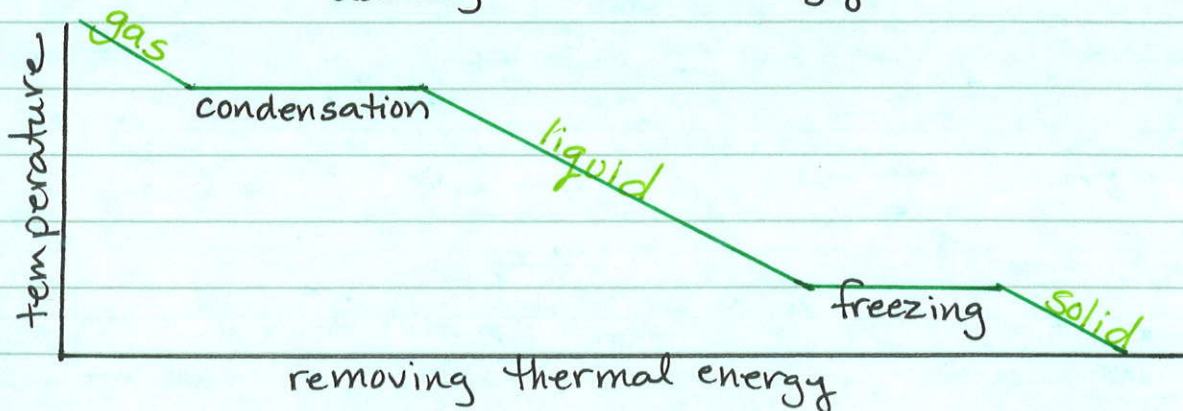 gas
temperature
condensation
liquid
freezing
solid
removing thermal energy